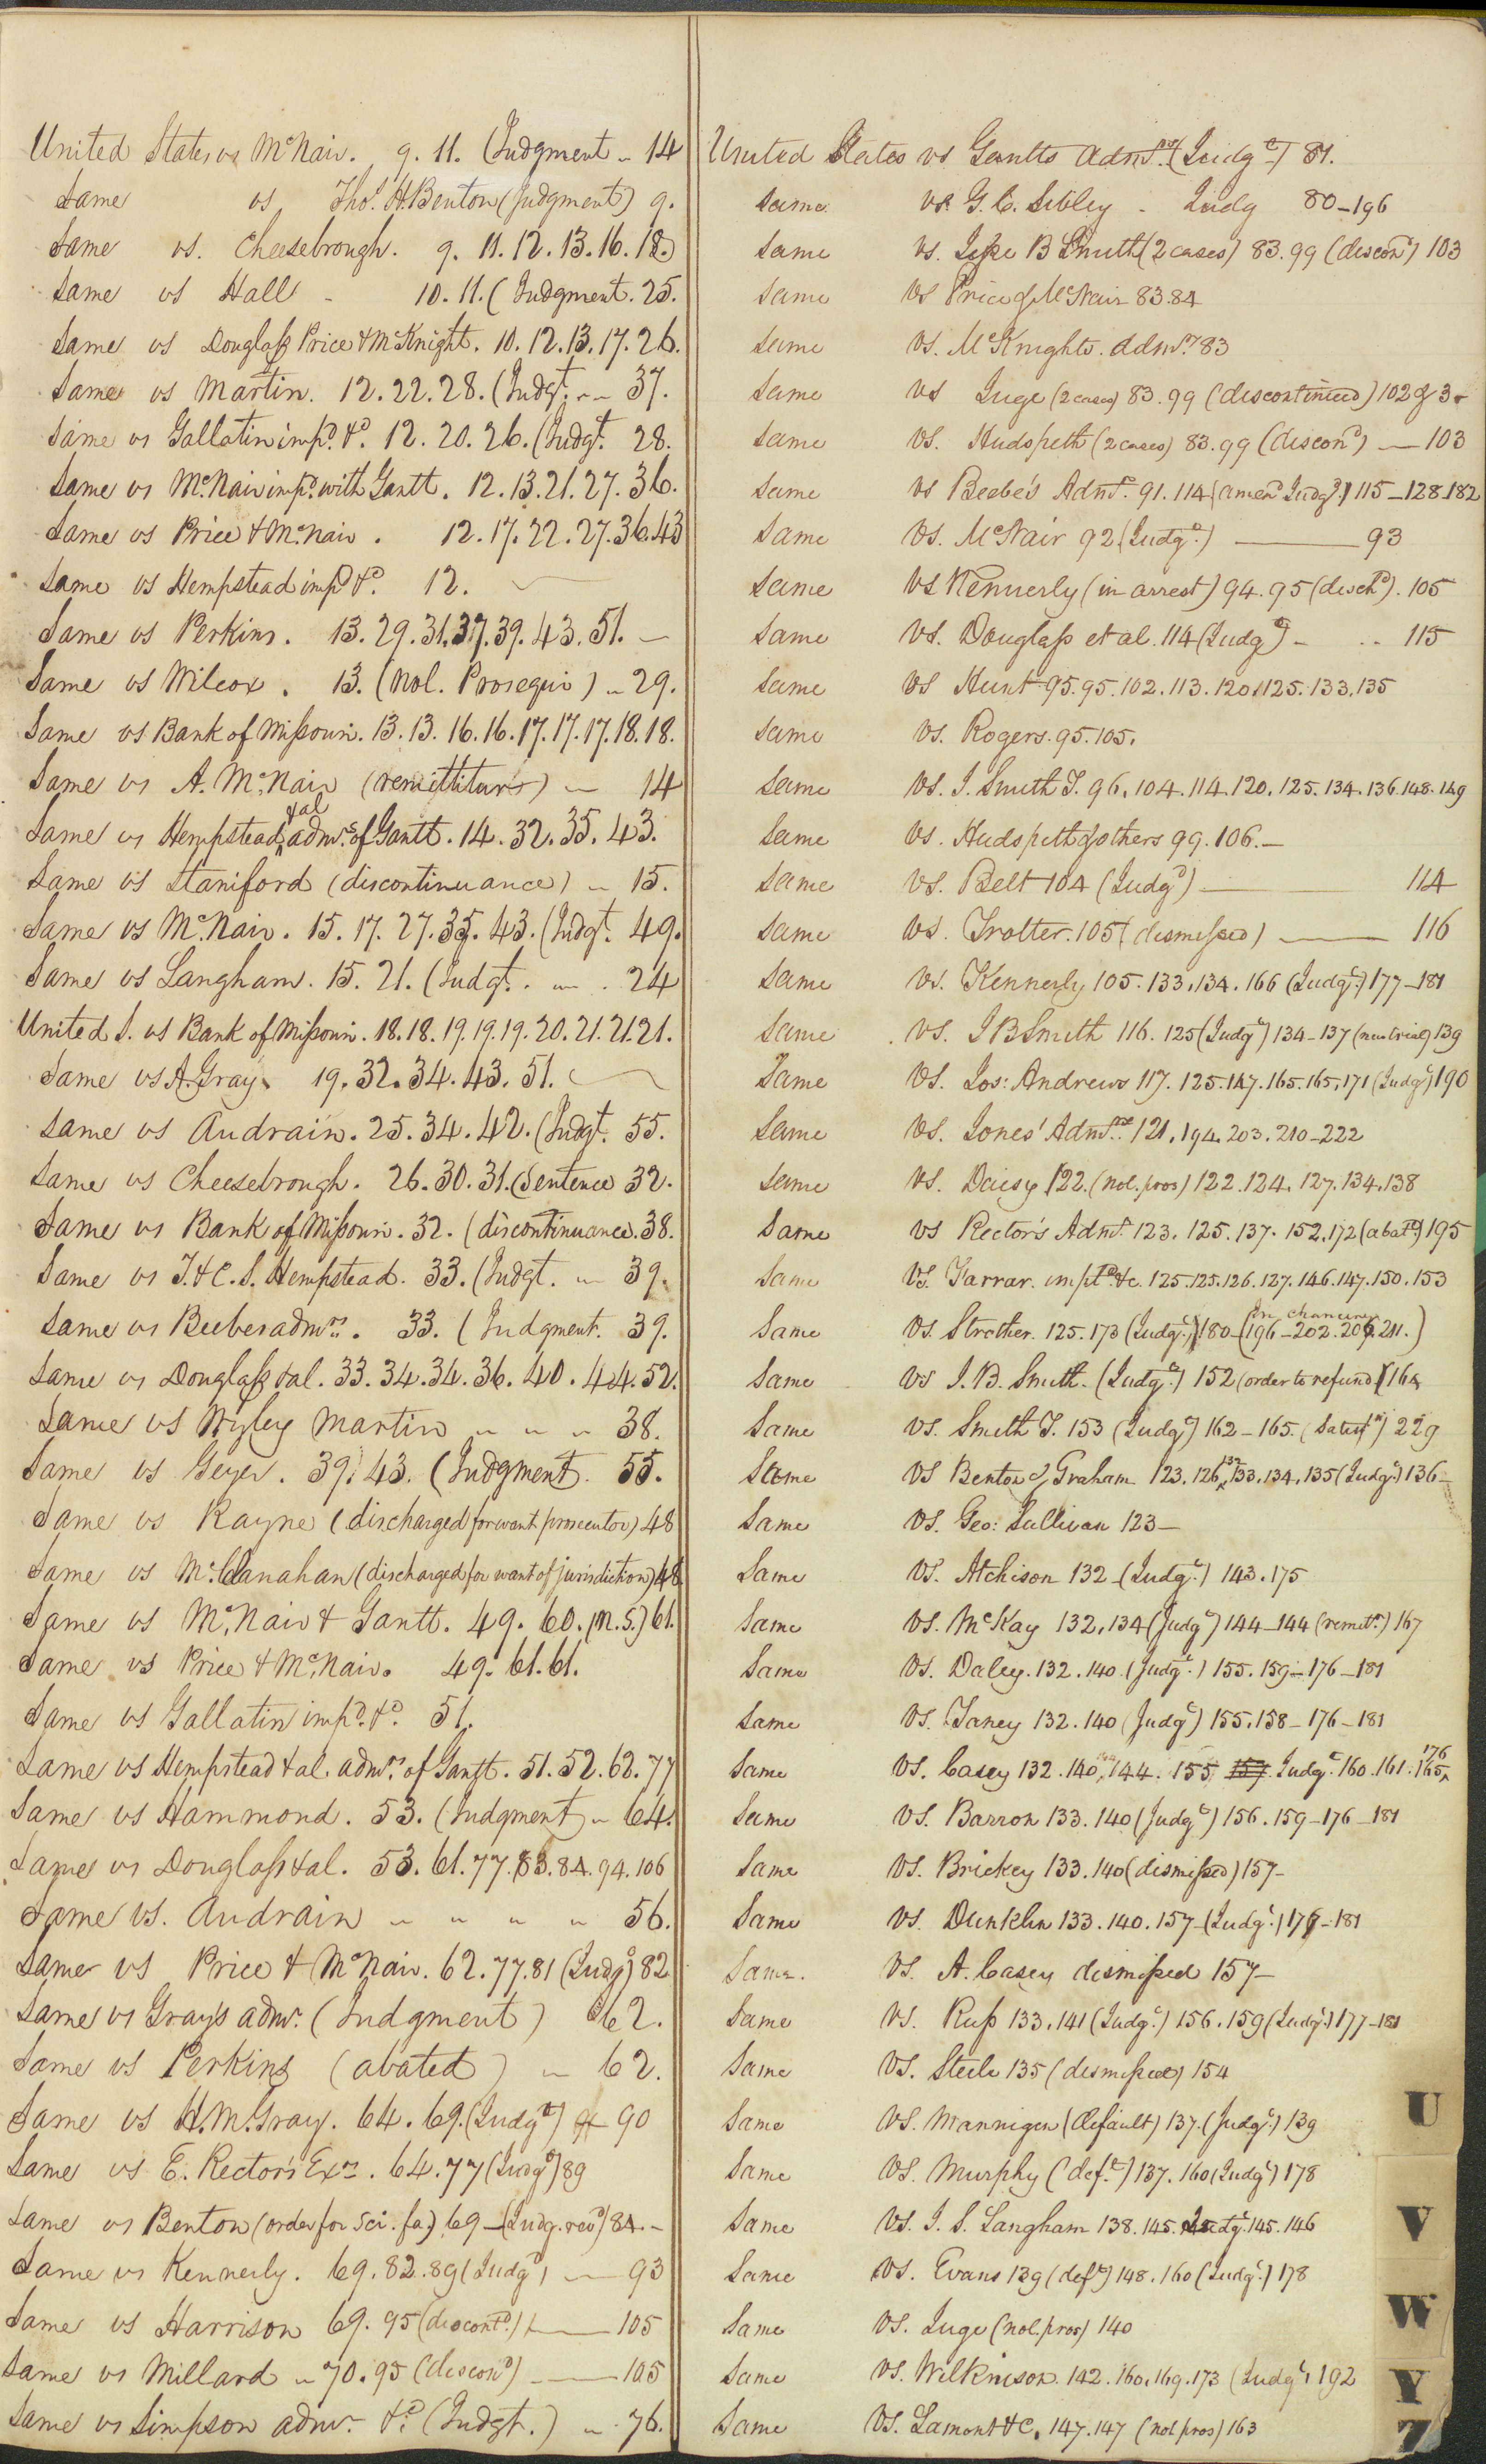 United States vs McNair. 9. 11. (Judgment - 14
Same vs Thos. H. Benton (Judgment) 9.
Same vs. Cheesebrough. 9. 11. 12. 13. 16. 18.)
Same vs Hall - 10. 11. (Judgment. 25.
Same vs Douglass Price & McKnight. 10. 12. 13. 17. 26.
Same vs Martin. 12. 22. 28. (Judgt. - - 37.
Same vs Gallatin impd. &c. 12. 20. 26. (Judgt. 28.
Same vs McNair impd. with Gantt. 12. 13. 21. 27. 36.
Same vs Price & McNair. 12. 17. 22. 27. 36. 43
Same vs Hempstead impd &c. 12.
Same vs Perkins. 13. 29. 31. 37. 39. 43. 51. -
Same vs Wilcox. 13. (Nol. Prosequi) - 29.
Same vs Bank of Missouri. 13. 13. 16. 16. 17. 17. 17. 18. 18.
Same vs A. McNair (remittiturs) - 14
Same vs Hempstead &al admrs. of Gantt. 14. 32. 35. 43.
Same vs Staniford (discontinuance) - 15.
Same vs McNair. 15. 17. 27. 35. 43. (Judgt. 49.
Same vs Langham. 15. 21. (Judgt. - 24
United S. vs Bank of Missouri. 18. 18. 19. 19. 19. 20. 21. 21. 21.
Same vs A. Gray. 19. 32. 34. 43. 51.
Same vs Audrain. 25. 34. 42. (Judgt. 55.
Same vs Cheesebrough. 26. 30. 31. (Sentence 32.
Same vs Bank of Missouri. 32. (discontinuance. 38.
Same vs T. & C. S. Hempstead. 33. (Judgt. - 39.
Same vs Beebes admrs. 33. (Judgment. 39.
Same vs Douglass &al. 33. 34. 34. 36. 40. 44. 52.
Same vs Wyley Martin - - - 38.
Same vs Geyer. 39. 43. (Judgment. 55.
Same vs Rayne (discharged for want prosecutor) 48
Same vs McClanahan (discharged for want of jurisdiction) 48
Same vs McNair & Gantt. 49. 60. (N. S.) 61.
Same vs Price & McNair. 49. 61. 61.
Same vs Gallatin impd. &c. 51.
Same vs Hempstead & al. admrs. of Gantt. 51. 52. 62. 77
Same vs Hammond. 53. (Judgment - 64.
Same vs Douglass &al. 53. 61. 77. 83. 84. 94. 106
Same vs. Audrain - - - - 56.
Same vs Price & McNair. 62. 77. 81 (Judgt) 82
Same vs Gray's admr. (Judgment) 62.
Same vs Perkins (abated) - 62.
Same vs H. M. Gray. 64. 69. (Judgt) 90
Same vs E. Rector's Exrs. 64. 77 (Judgt) 89
Same vs Benton (order for Sci. fa.) 69 - (Judg. revd) 84. -
Same vs Kennerly. 69. 82. 89 (Judgt) - 93
Same vs Harrison 69. 95 (discontd.) - 105
Same vs Millard - 70. 95 (discond) - 105
Same vs Simpson admr. &c. (Judgt.) - 76.
United States vs Gantts Admrs. (Judgt) 81.
Same vs. G. C. Sibley - Judg 80-196
Same vs. B Smith (2 cases) 83. 99 (discond) 103
Same vs Price & McNair 83. 84
Same vs. McKnights. Admr. 83
Same vs Inge (2 cases) 83. 99 (discontinued) 102 & 3-
Same vs. Hudspeth (2 cases) 83. 99 (discond) - 103
Same vs Beebe's Admr. 91. 114 (amend Judgt.) 115-128-182
Same vs. McNair 92 (Judgt.) - 93
Same vs Kennerly (in arrest) 94. 95 (disch'd). 105
Same vs. Douglass et al. 114 (Judgt) - - 115
Same vs Hunt 95. 95. 102. 113. 120. 125. 133. 135
Same vs. Rogers. 95. 105.
Same vs. J. Smith T. 96. 104. 114. 120. 125. 134. 136. 148. 149
Same vs. Hudspeth & others 99. 106. -
Same vs. Belt 104 (Judgt) - 114
Same vs. Trotter. 105 (dismissed) - 116
Same vs. Kennerly 105. 133. 134. 166 (Judgt.) 177-181
Same vs. J B Smith 116. 125 (Judgt) 134-137 (new trial) 139
Same vs. Jos: Andrews 117. 125. 147. 165. 165. 171 (Judgt) 190
Same vs. Jones' Admrs. 121. 194. 203. 210-222
Same vs. Daisy 122. (nol. pros) 122. 124. 127. 134. 138
Same vs Rector's Admr. 123. 125. 137. 152. 172 (abatd) 195
Same vs. Farrar. impld. &c. 125. 125. 126. 127. 146. 147. 150. 153
Same vs. Strother. 125. 173 (Judgt.) 180-(In chancery 196-202. 206. 211.)
Same vs J. B. Smith. (Judgt) 152 (order to refund) 164
Same vs. Smith T. 153 (Judgt) 162-165. (Satisfn) 229
Same vs Benton & Graham 123. 126. 132 133. 134. 135 (Judgt.) 136-
Same vs. Geo: Sullivan 123-
Same vs. Atchison 132 (Judgt.) 143. 175
Same vs. McKay 132. 134 (Judgt) 144-144 (remitr.) 167
Same vs. Daley. 132. 140. (Judgt.) 155. 159-176-181
Same vs. Janey 132. 140 (Judgt) 155. 158-176-181
Same vs. Casey 132. 140. 144. 155 157 Judgt. 160. 161. 165. 176
Same vs. Barron 133. 140 (Judgt) 156. 159-176-181
Same vs. Brickey 133. 140 (dismissed) 157-
Same vs. Dunklin 133. 140. 157-(Judgt.) 177-181
Same. vs. A. Casey dismissed 157-
Same vs. Russ 133. 141 (Judgt.) 156. 159 (Judgt.) 177-181
Same vs. Steele 135 (dismissed) 154
Same vs. Mannigen (default) 137. (Judgt.) 139
Same vs. Murphy (deft.) 137. 160 (Judgt) 178
Same vs. J. S. Langham 138. 145. Judgt. 145. 146
Same vs. Evans 139 (deft) 148. 160 (Judgt.) 178
Same vs. Inge (nol. pros) 140
Same vs. Wilkinson. 142. 160. 169. 173 (Judgt) 192
Same vs. Lamont &c. 147. 147 (nol pros) 163
U
V
W
Y
Z